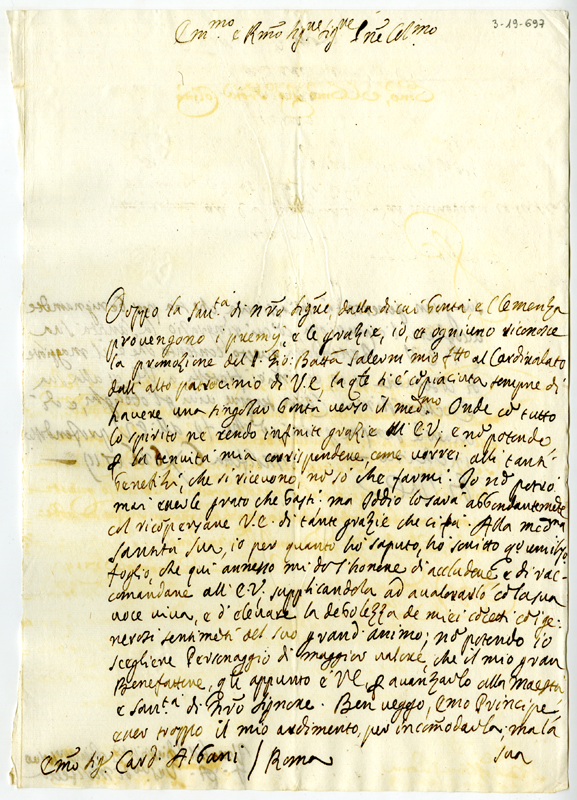 3-19-697
Em.mo e R.mo Sig.re Sig.re P.ne Col.mo
Doppo la San.tà di N'ro Sig.re dalla di cui bontà e Clemenza
provengono i premij, e le grazie, io, et ogniuno riconosce
la promozione del P. Gio: Batta Salerni mio f'tto al Cardinalato
dall' alto patrocinio di V.E. la q'le si è co'piaciuta sempre di
havere una singolar bontà verso il med.mo Onde co' tutto
lo spirito ne rendo infinite grazie all' E.V.; e no' potendo
la tenuità mia corrispondere come vorrei alli tanti
benefizi, che si ricevono, no' so che farmi. Io no' potrò
mai esserle grato che basti; ma Iddio lo sarà abbondanteme'te
col ricompensare V.E. di tante grazie che ci fa. Alla med'ma
Santità Sua, io per quanto hò saputo, hò scritto q'o umiliss.o
foglio, che qui annesso mi do l'honore di accludere, e di rac-
comandare all' E.V. supplicandola ad avalorarlo co' la sua
voce viva, e d'elevare la debolezza de miei co'cetti co' i ge-
nerosi sentime'ti del suo grand' animo; no' potendo io
scegliere Personaggio di maggior valore, che il mio gran
Benefattore, qu'l appunto è V.E. p' avanzarlo alla Maestà
e San.tà di N'ro Signore. Ben veggo, Em'o Principe
esser troppo il mio ardimento, per inco'modarla; ma la
sua
Em'o Sig. Card. Albani / Roma